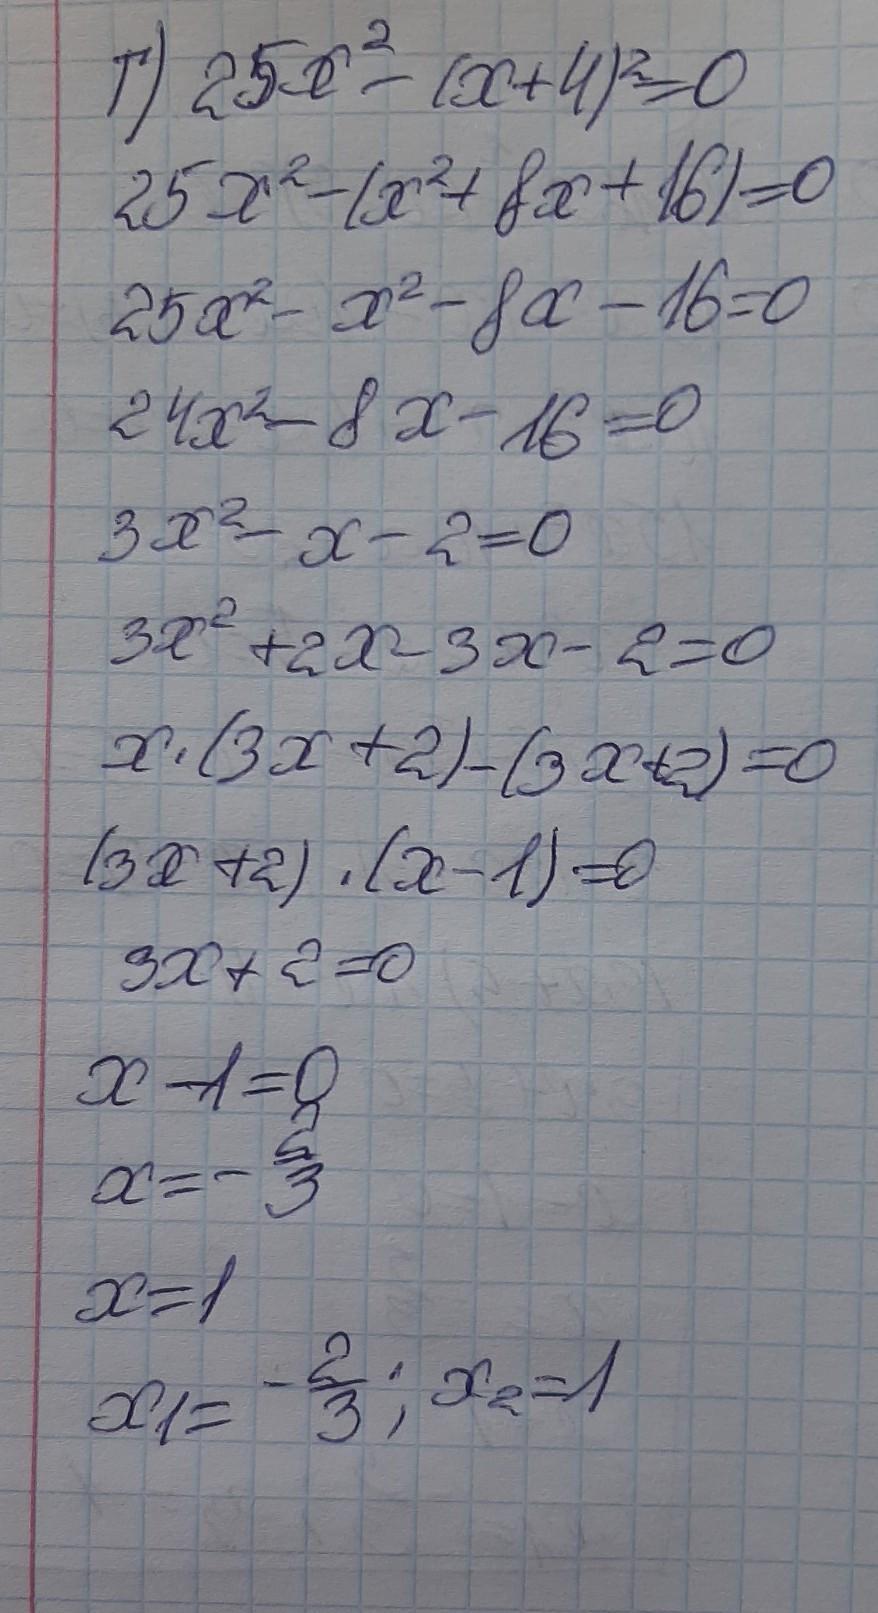 г) 25x² - (x+4)² = 0
25x² - (x² + 8x + 16) = 0
25x² - x² - 8x - 16 = 0
24x² - 8x - 16 = 0
3x² - x - 2 = 0
3x² + 2x - 3x - 2 = 0
x · (3x + 2) - (3x + 2) = 0
(3x + 2) · (x - 1) = 0
3x + 2 = 0
x - 1 = 0
x = - 2/3
x = 1
x₁ = - 2/3 ; x₂ = 1